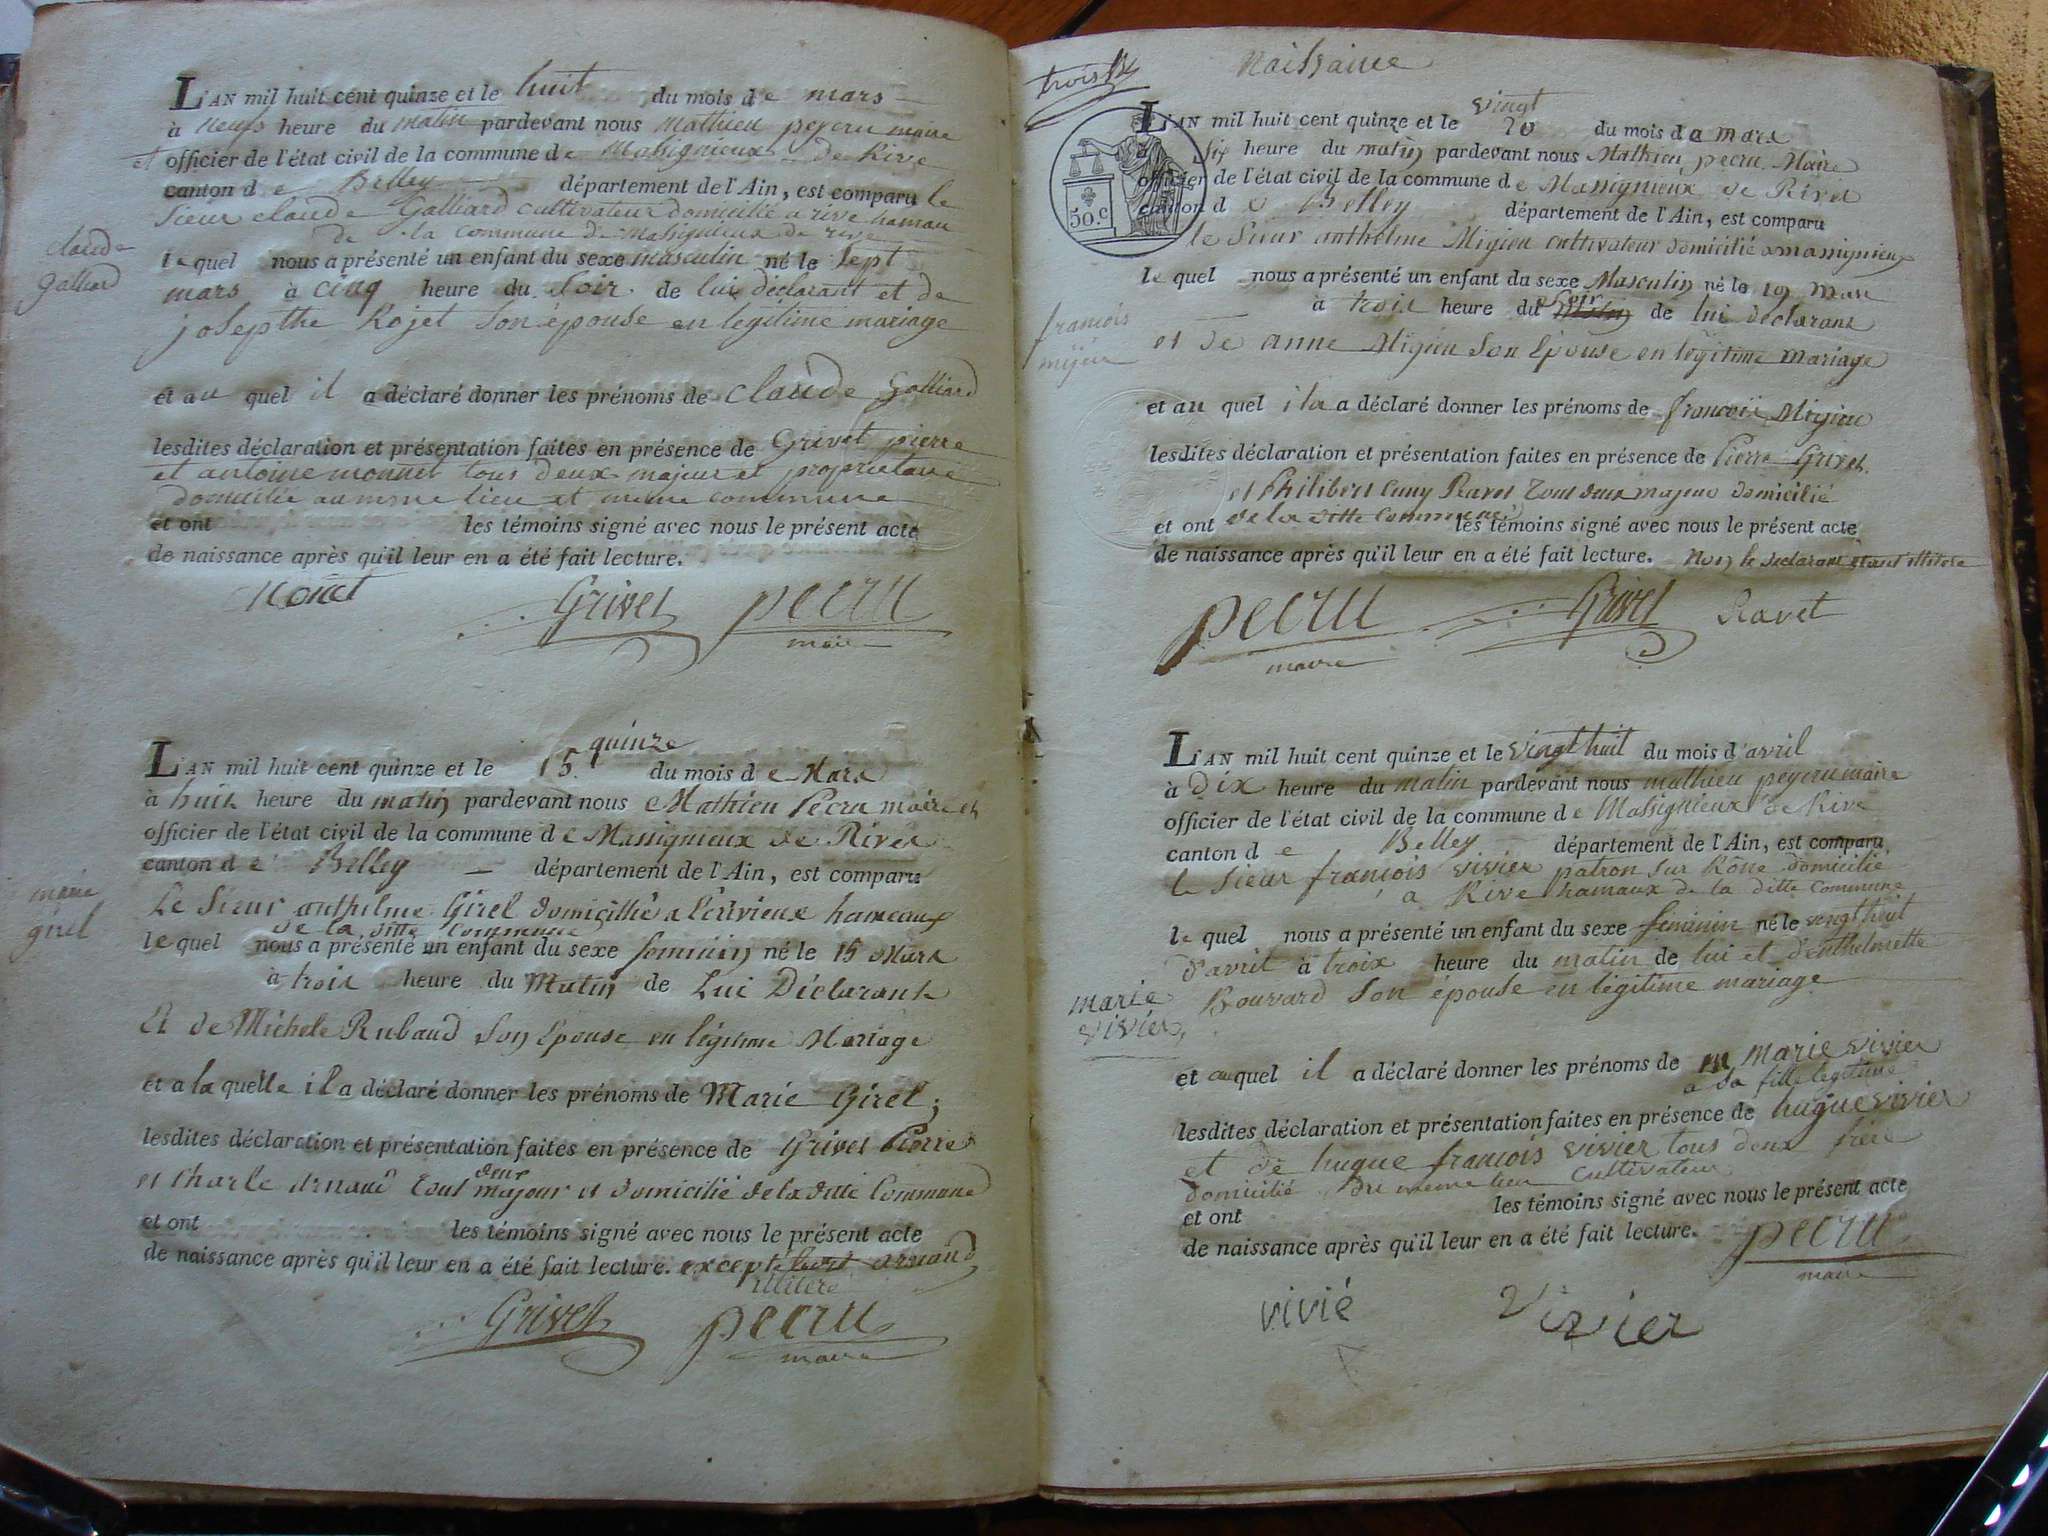 L'AN mil huit cent quinze et le huit du mois de mars
à neufs heure du matin pardevant nous mathieu peycru maire
et officier de l'état civil de la commune de Massignieux de Rive
canton de Belley département de l'Ain, est comparu le
sieur claude Galliard cultivateur domicilié a rive hamau
de la commune de massignieux de rive
claude
galliard
le quel nous a présenté un enfant du sexe masculin né le sept
mars à cinq heure du soir de lui déclarant et de
josepthe Rojet son épouse en legitime mariage
et au quel il a déclaré donner les prénoms de claude Galliard
lesdites déclaration et présentation faites en présence de Grivet pierre
et antoine monnet tous deux majeur et propriétaire
domicilié au même lieu et meme commune
et ont les témoins signé avec nous le présent acte
de naissance après qu'il leur en a été fait lecture.
Grivet pecru
maire
L'AN mil huit cent quinze et le 15 quinze du mois de Mars
à huit heure du matin pardevant nous Mathieu Pecru maire et
officier de l'état civil de la commune de Massignieux de Rives
canton de Belley département de l'Ain, est comparu
Le Sieur anthelme Girel domicillié a hameaux
de la ditte Commune
marie
girel
le quel nous a présenté un enfant du sexe feminin né le 15 Mars
à trois heure du Matin de Lui Déclarant
Et de Michele Rubaud son Epouse en légitime Mariage
et a la quelle il a déclaré donner les prénoms de Marie Girel;
lesdites déclaration et présentation faites en présence de Grivet Pierre
et Charle Arnaud tous deux majeur et domicilié de la ditte Commune
et ont les témoins signé avec nous le présent acte
de naissance après qu'il leur en a été fait lecture. excepté arnaud
illitere
Grivet pecru
maire
trois
Naissance
50.c
L'AN mil huit cent quinze et le vingt 20 du mois de mars
à six heure du matin pardevant nous Mathieu pecru Maire
officier de l'état civil de la commune de Massignieux de Rives
canton de Belley département de l'Ain, est comparu
le sieur anthelme Migieu cultivateur domicilié a massignieux
le quel nous a présenté un enfant du sexe Masculin né le 19 Mars
à trois heure du soir de lui declarant
françois
mijeu
et de anne Migieu son Epouse en légitime mariage
et au quel il a a déclaré donner les prénoms de françois Migieu
lesdites déclaration et présentation faites en présence de Pierre Grivet
et Philibert Cuny Ravet tout deux majeur domicilié
de la ditte Commune
et ont les témoins signé avec nous le présent acte
de naissance après qu'il leur en a été fait lecture. Non le declarant etant illitere
pecru Grivet Ravet
maire
L'AN mil huit cent quinze et le vingt huit du mois d'avril
à dix heure du matin pardevant nous mathieu peycru maire
officier de l'état civil de la commune de Massignieux de Rive
canton de Belley département de l'Ain, est comparu
le sieur françois vivier patron sur Rône domicilié
a Rive hamaux de la ditte Commune
le quel nous a présenté un enfant du sexe feminin né le vingt huit
d'avril à troix heure du matin de lui et d'enthelmette
Bouvard son épouse en légitime mariage
marie
vivier
et auquel il a déclaré donner les prénoms de marie vivier
a sa fille legitime
lesdites déclaration et présentation faites en présence de hugue vivier
et de hugue françois vivier tous deux frère
domicilié du meme lieu cultivateur
et ont les témoins signé avec nous le présent acte
de naissance après qu'il leur en a été fait lecture. pecru
maire
vivié vivier